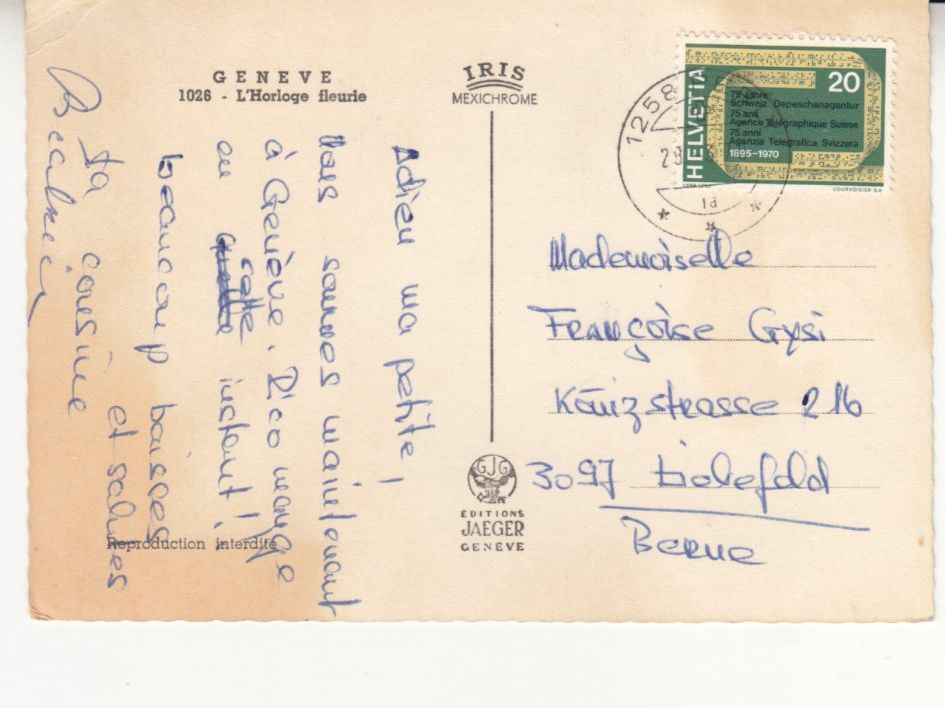 GENEVE
1026 - L'Horloge fleurie
IRIS
MEXICHROME
Adieu ma petite!
Nous sommes maintenant
à Genève. Rico mange
au cette instant!
beaucoup baisses
et salues
ta cousine
Reproduction interdite
GJG
EDITIONS
JAEGER
GENEVE
1258
28
1a
HELVETIA
20
75 Jahre
Schweiz. Depeschenagentur
75 ans
Agence Télégraphique Suisse
75 anni
Agenzia Telegrafica Svizzera
1895-1970
COURVOISIER S.A.
Mademoiselle
Françoise Gysi
Könizstrasse 216
3097 Liebefeld
Berne